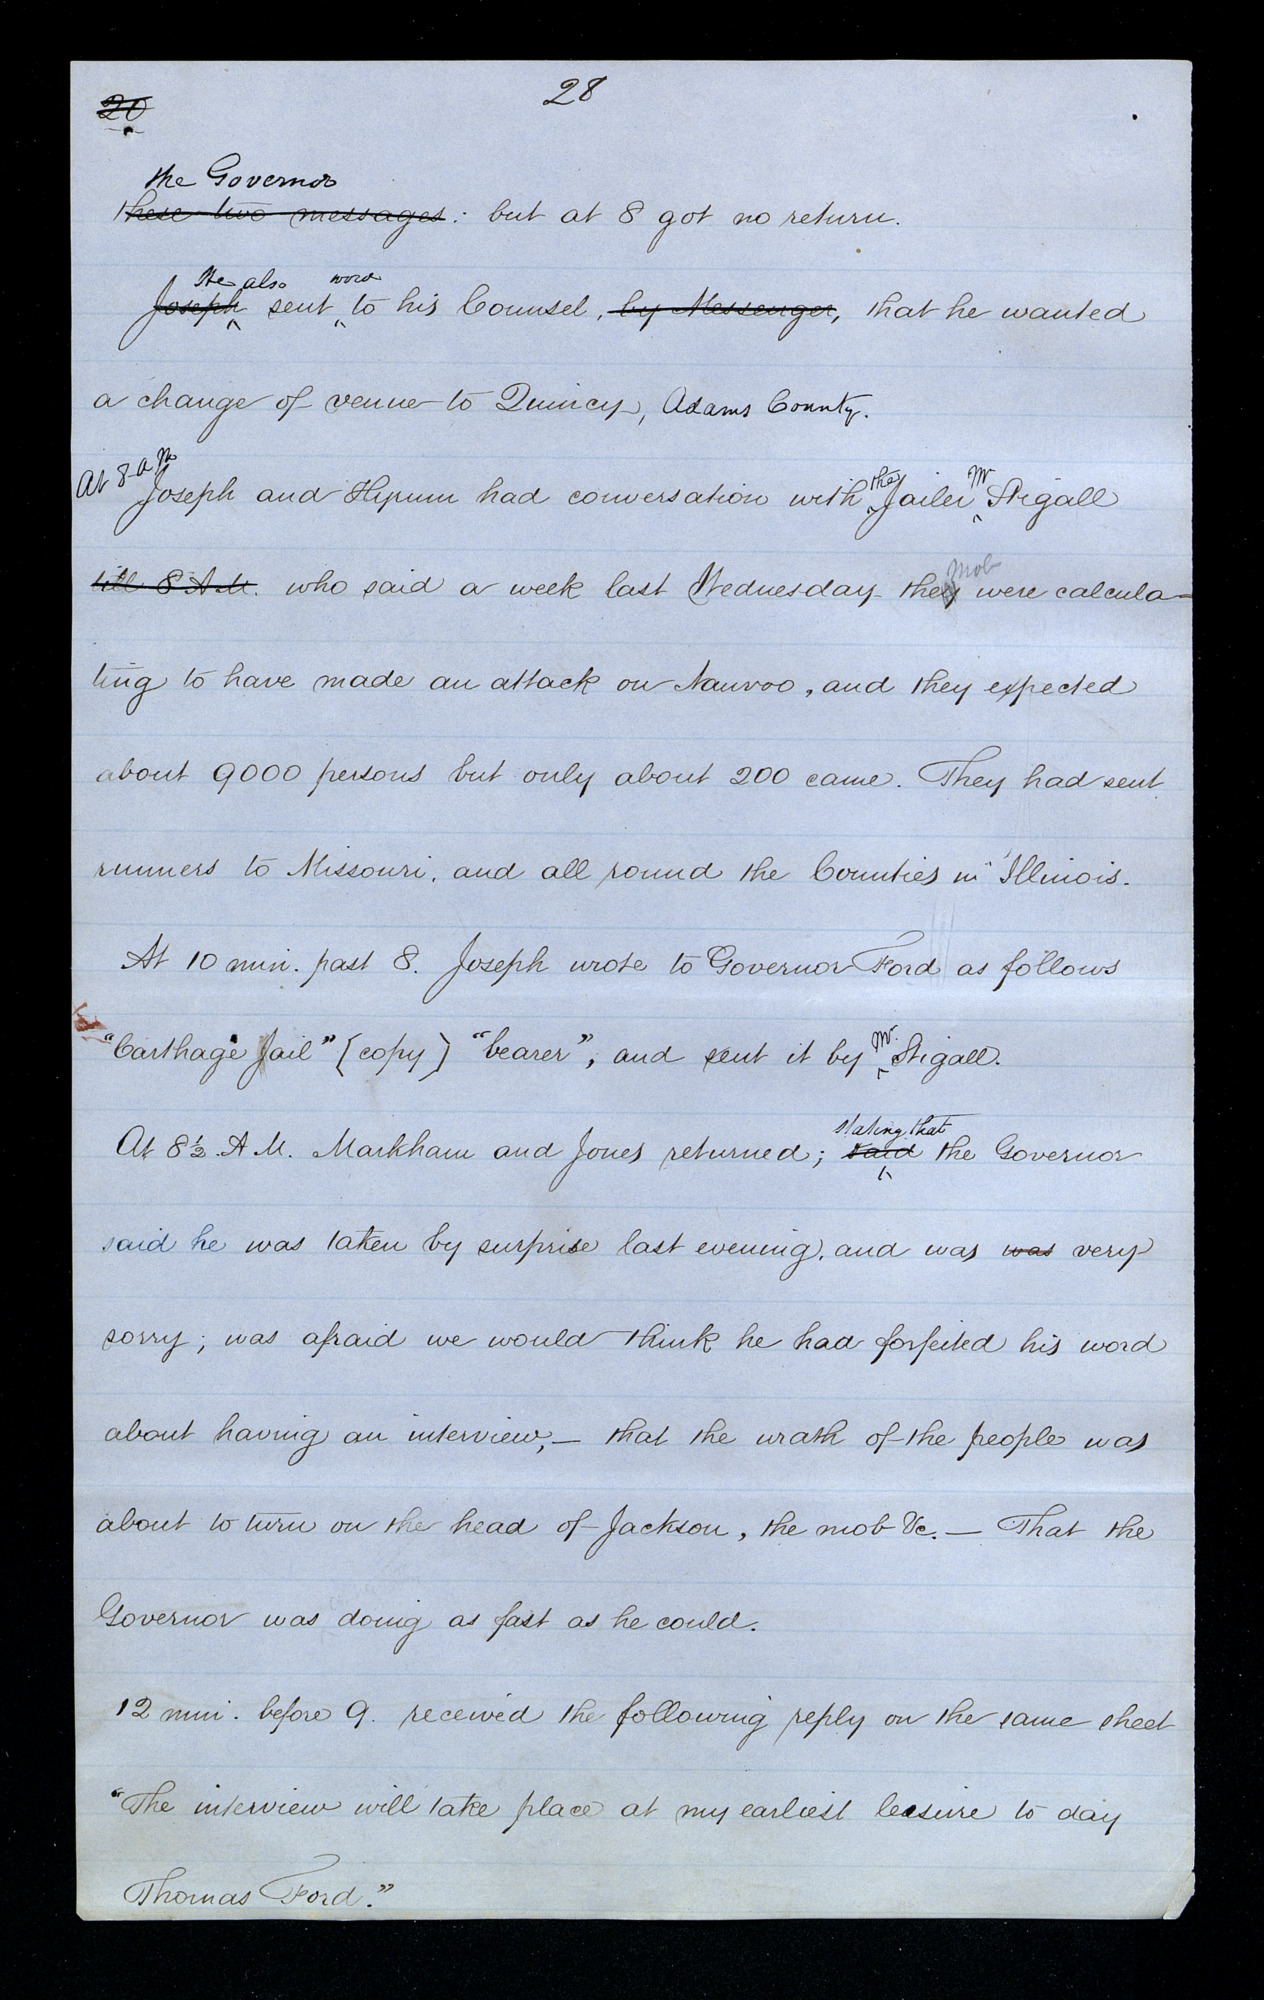 28
20
the Governor
these two messages: but at 8 got no return.
He also word
Joseph sent to his Counsel, by Messenger, that he wanted
a change of venue to Quincy, Adams County.
At 8 A M the Mr
Joseph and Hyrum had conversation with Jailer Stigall
Mob
till 8 A.M. who said a week last Wednesday they were calcula-
ting to have made an attack on Nauvoo, and they expected
about 9000 persons but only about 200 came. They had sent
runners to Missouri, and all round the Counties in Illinois.
At 10 min. past 8. Joseph wrote to Governor Ford as follows
Mr.
"Carthage Jail" [copy] "bearer", and sent it by Stigall.
stating that
At 8½ A M. Markham and Jones returned; said the Governor
said he was taken by surprise last evening, and was was very
sorry; was afraid we would think he had forfeited his word
about having an interview,— that the wrath of the people was
about to turn on the head of Jackson, the mob &c. — That the
Governor was doing as fast as he could.
12 min. before 9. received the following reply on the same sheet
"The interview will take place at my earliest leisure to day
Thomas Ford."